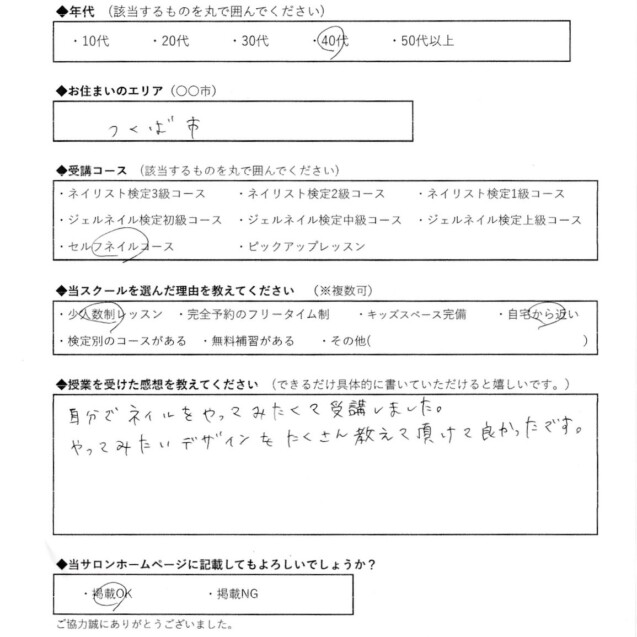 ◆年代　（該当するものを丸で囲んでください）
・10代　・20代　・30代　・40代　・50代以上
◆お住まいのエリア（〇〇市）
つくば市
◆受講コース　（該当するものを丸で囲んでください）
・ネイリスト検定3級コース　・ネイリスト検定2級コース　・ネイリスト検定1級コース
・ジェルネイル検定初級コース　・ジェルネイル検定中級コース　・ジェルネイル検定上級コース
・セルフネイルコース　・ピックアップレッスン
◆当スクールを選んだ理由を教えてください　（※複数可）
・少人数制レッスン　・完全予約のフリータイム制　・キッズスペース完備　・自宅から近い
・検定別のコースがある　・無料補習がある　・その他(　)
◆授業を受けた感想を教えてください　（できるだけ具体的に書いていただけると嬉しいです。）
自分でネイルをやってみたくて受講しました。
やってみたいデザインをたくさん教えて頂けて良かったです。
◆当サロンホームページに記載してもよろしいでしょうか？
・掲載OK　・掲載NG
ご協力誠にありがとうございました。